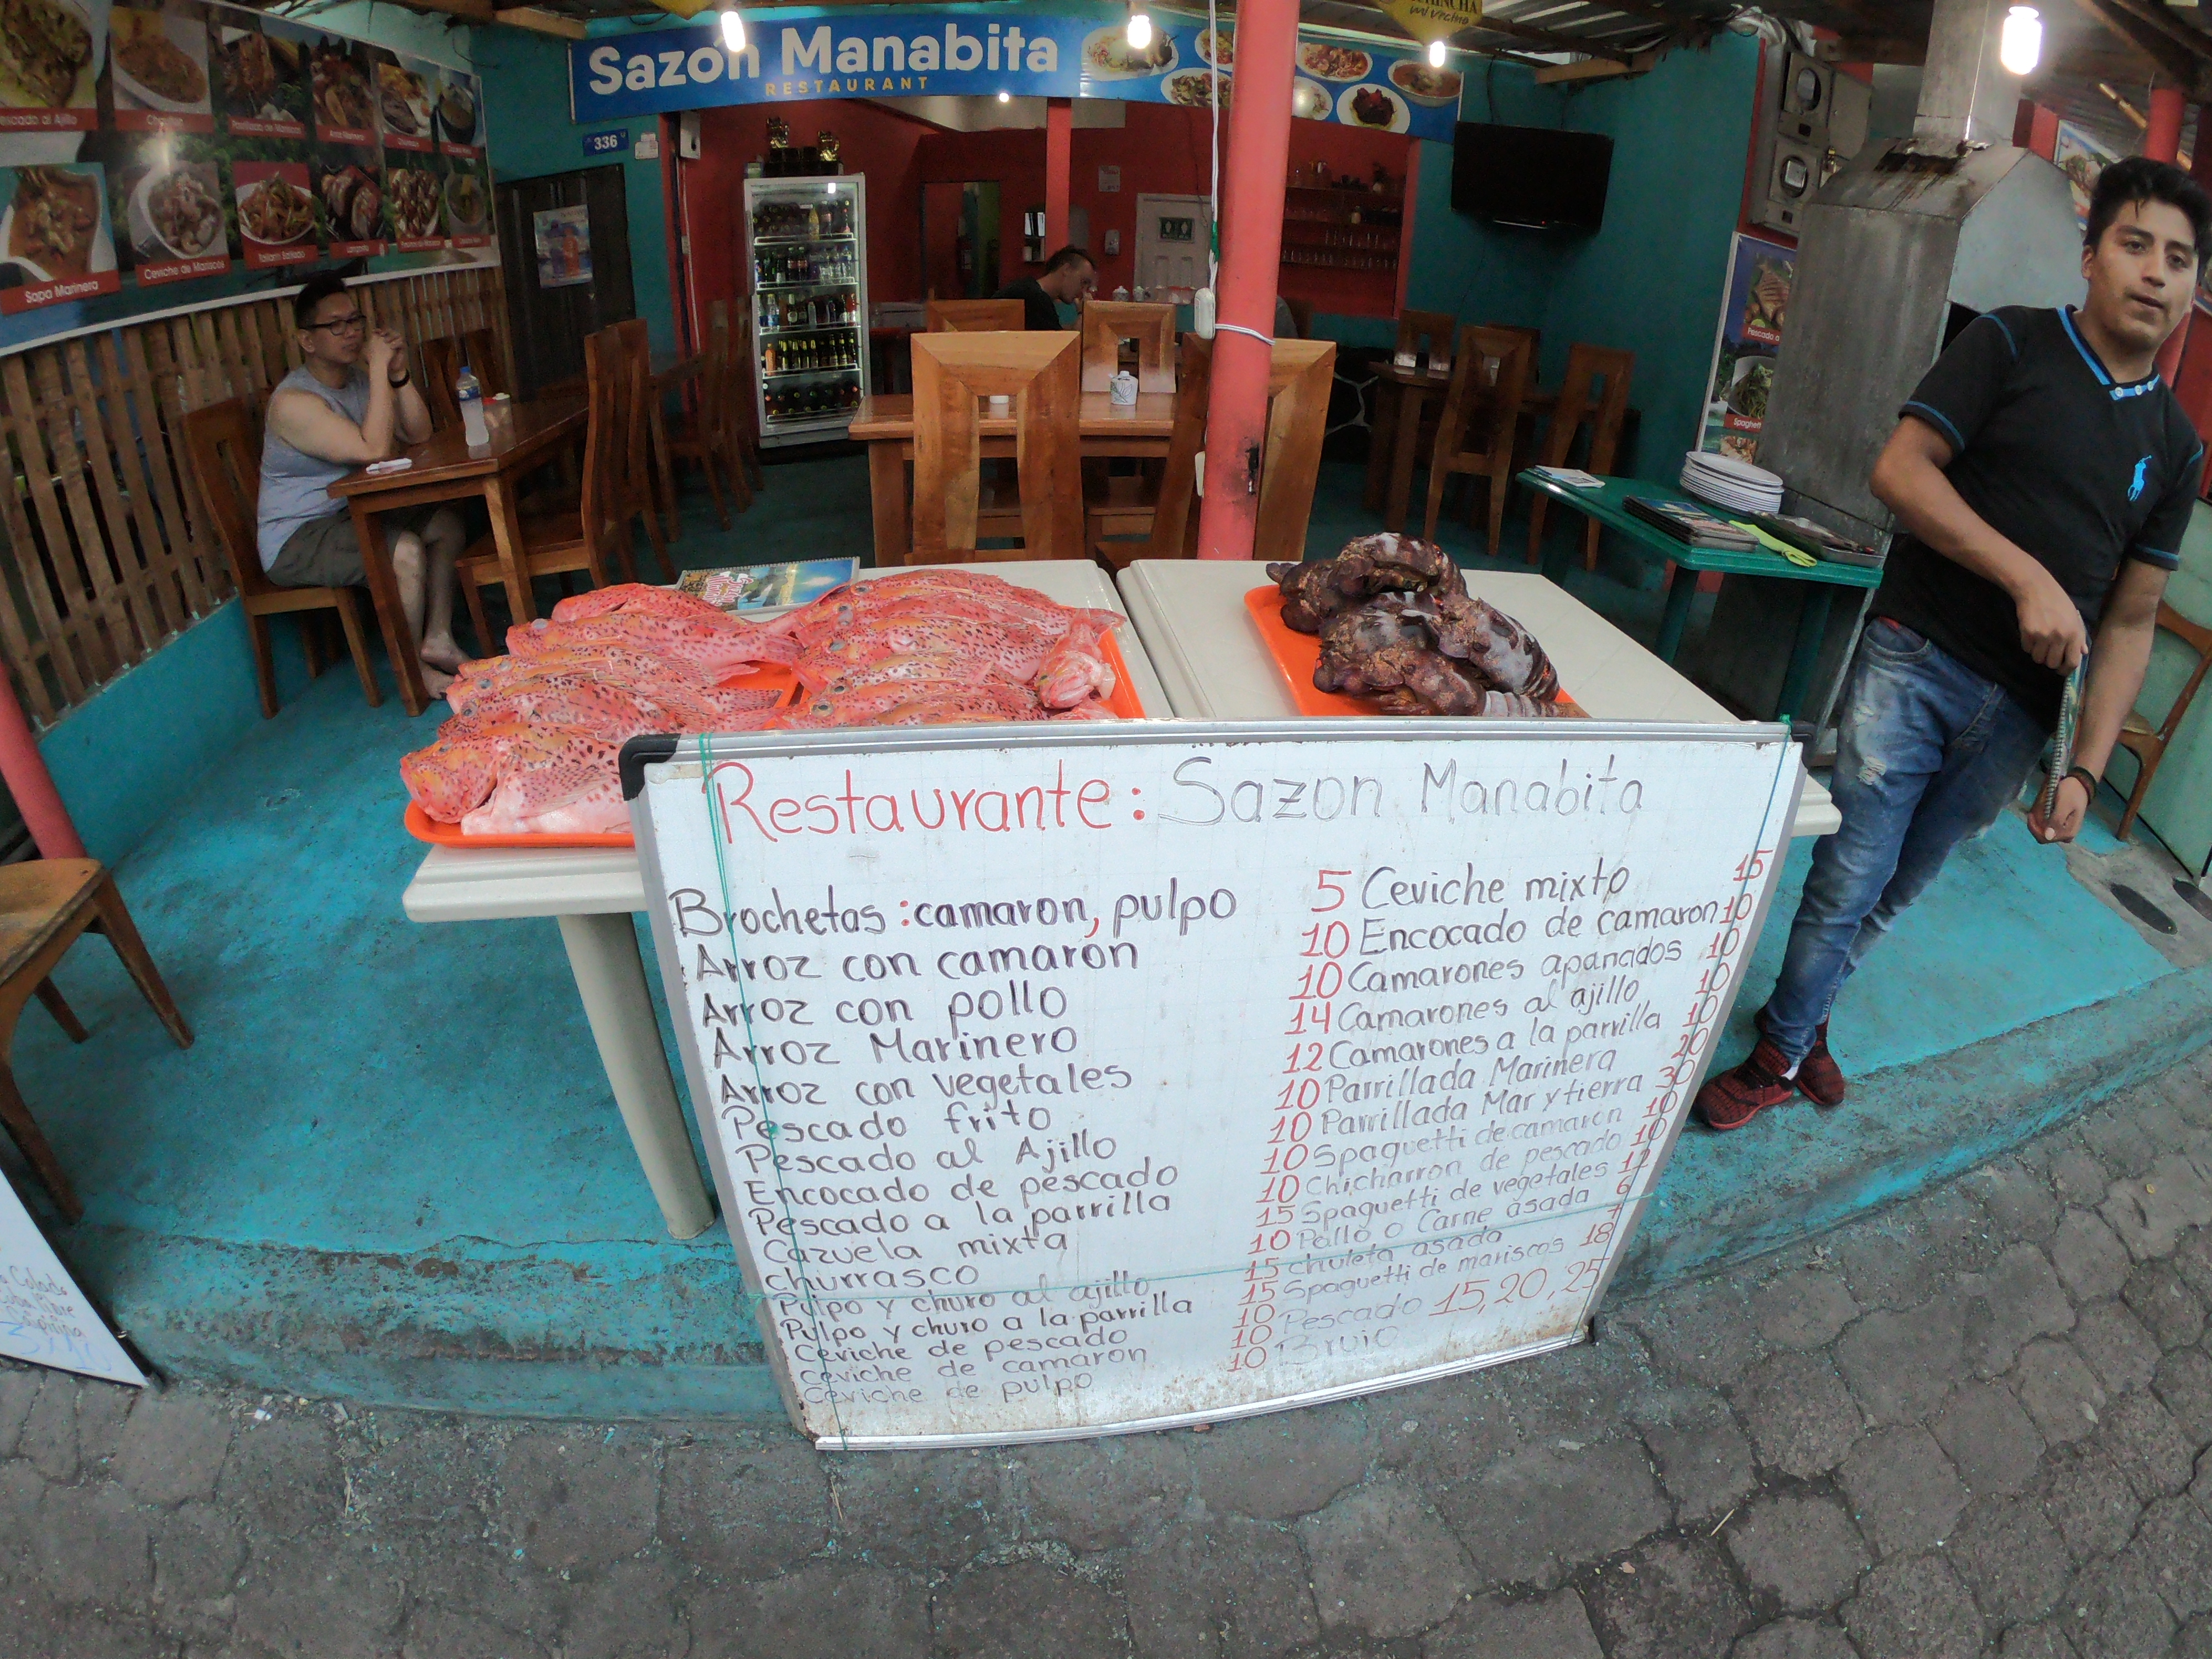 Sazón Manabita
RESTAURANT
mi vecino
336
Sopa Marinera
Ceviche de Mariscos
Tallarín Saltado
Restaurante: Sazon Manabita
Brochetas: camaron, pulpo 5
Arroz con camaron 10
Arroz con pollo 10
Arroz Marinero 14
Arroz con vegetales 12
Pescado frito 10
Pescado al Ajillo 10
Encocado de pescado 10
Pescado a la parrilla 10
Cazuela mixta 15
churrasco 10
Pulpo y churo al ajillo 15
Pulpo y churo a la parrilla 15
Ceviche de pescado 10
ceviche de camaron 10
Ceviche de pulpo 10
Ceviche mixto 15
Encocado de camaron 10
Camarones apanados 10
Camarones al ajillo 10
Camarones a la parrilla 10
Parrillada Marinera 20
Parrillada Mar y tierra 30
Spaguetti de camaron 10
Chicharron de pescado 10
Spaguetti de vegetales 12
Pollo o Carne asada 6
chuleta asada 7
Spaguetti de mariscos 18
Pescado 15, 20, 25
Brujo